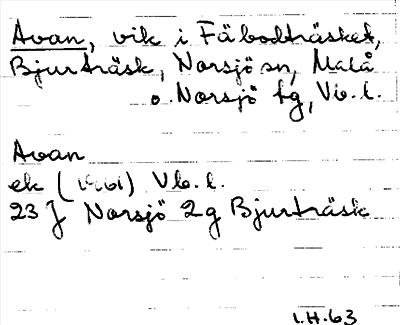 Avan, vik i Fäbodträsket,
Bjurträsk, Norsjö sn, Malå
o. Norsjö tg, Vb. l.
Avan
ek ( ) Vb. l.
23 J Norsjö 2g Bjurträsk
I.H.63